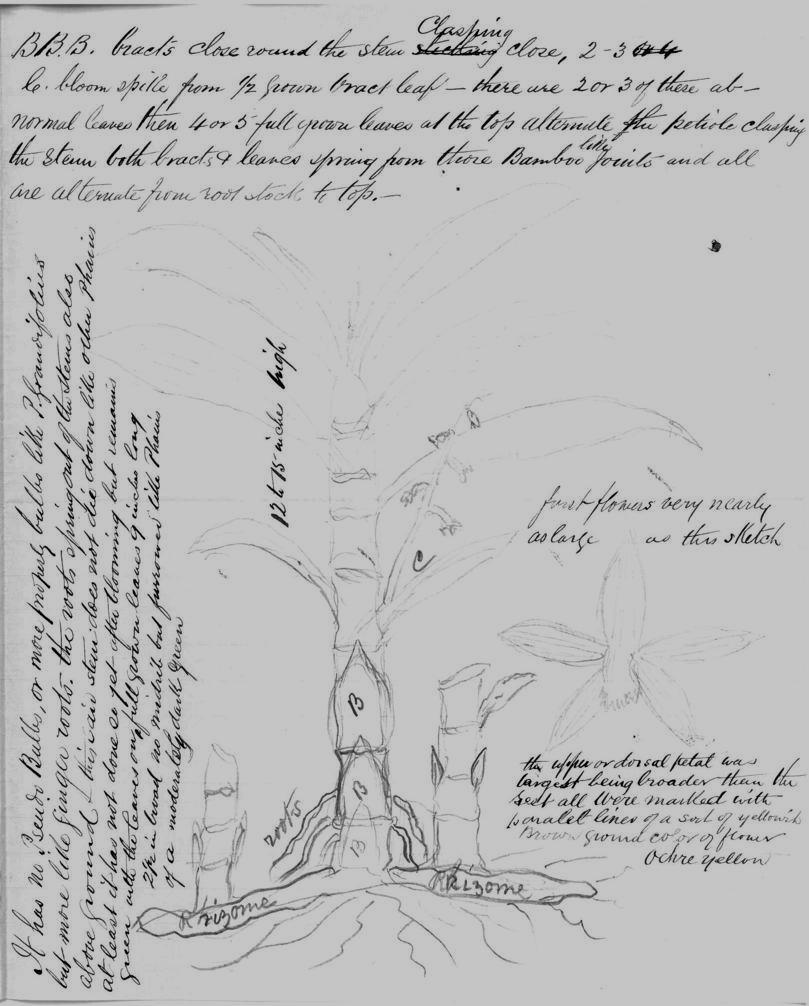 Clasping
BB.B. bracts close round the stem sticking close, 2-3 or 4
C. bloom spike from 1/2 grown bract leaf — there are 2 or 3 of these ab-
normal leaves then 4 or 5 full grown leaves at the top alternate the petiole clasping
the stem both bracts & leaves spring from those Bamboo like joints and all
are alternate from root stock to top.—
It has no Pseudo Bulbs, or more properly bulbs like P. Grandifolius
but more like ginger roots. the roots spring out of the stems also
above ground & this air stem does not die down like other Phaius
at least it has not done so yet after blooming but remains
green with the leaves on, full grown leaves 9 inches long
2 1/2 in broad no midrib but furrowed like Phaius
of a moderately dark green
12 to 15 inches high
C
first flowers very nearly
as large as this sketch
B
B
B
roots
Rhizome
Rhizome
the upper or dorsal petal was
largest being broader than the
rest all were marked with
paralet lines of a sort of yellowish
Brown ground color of flower
Ochre yellow